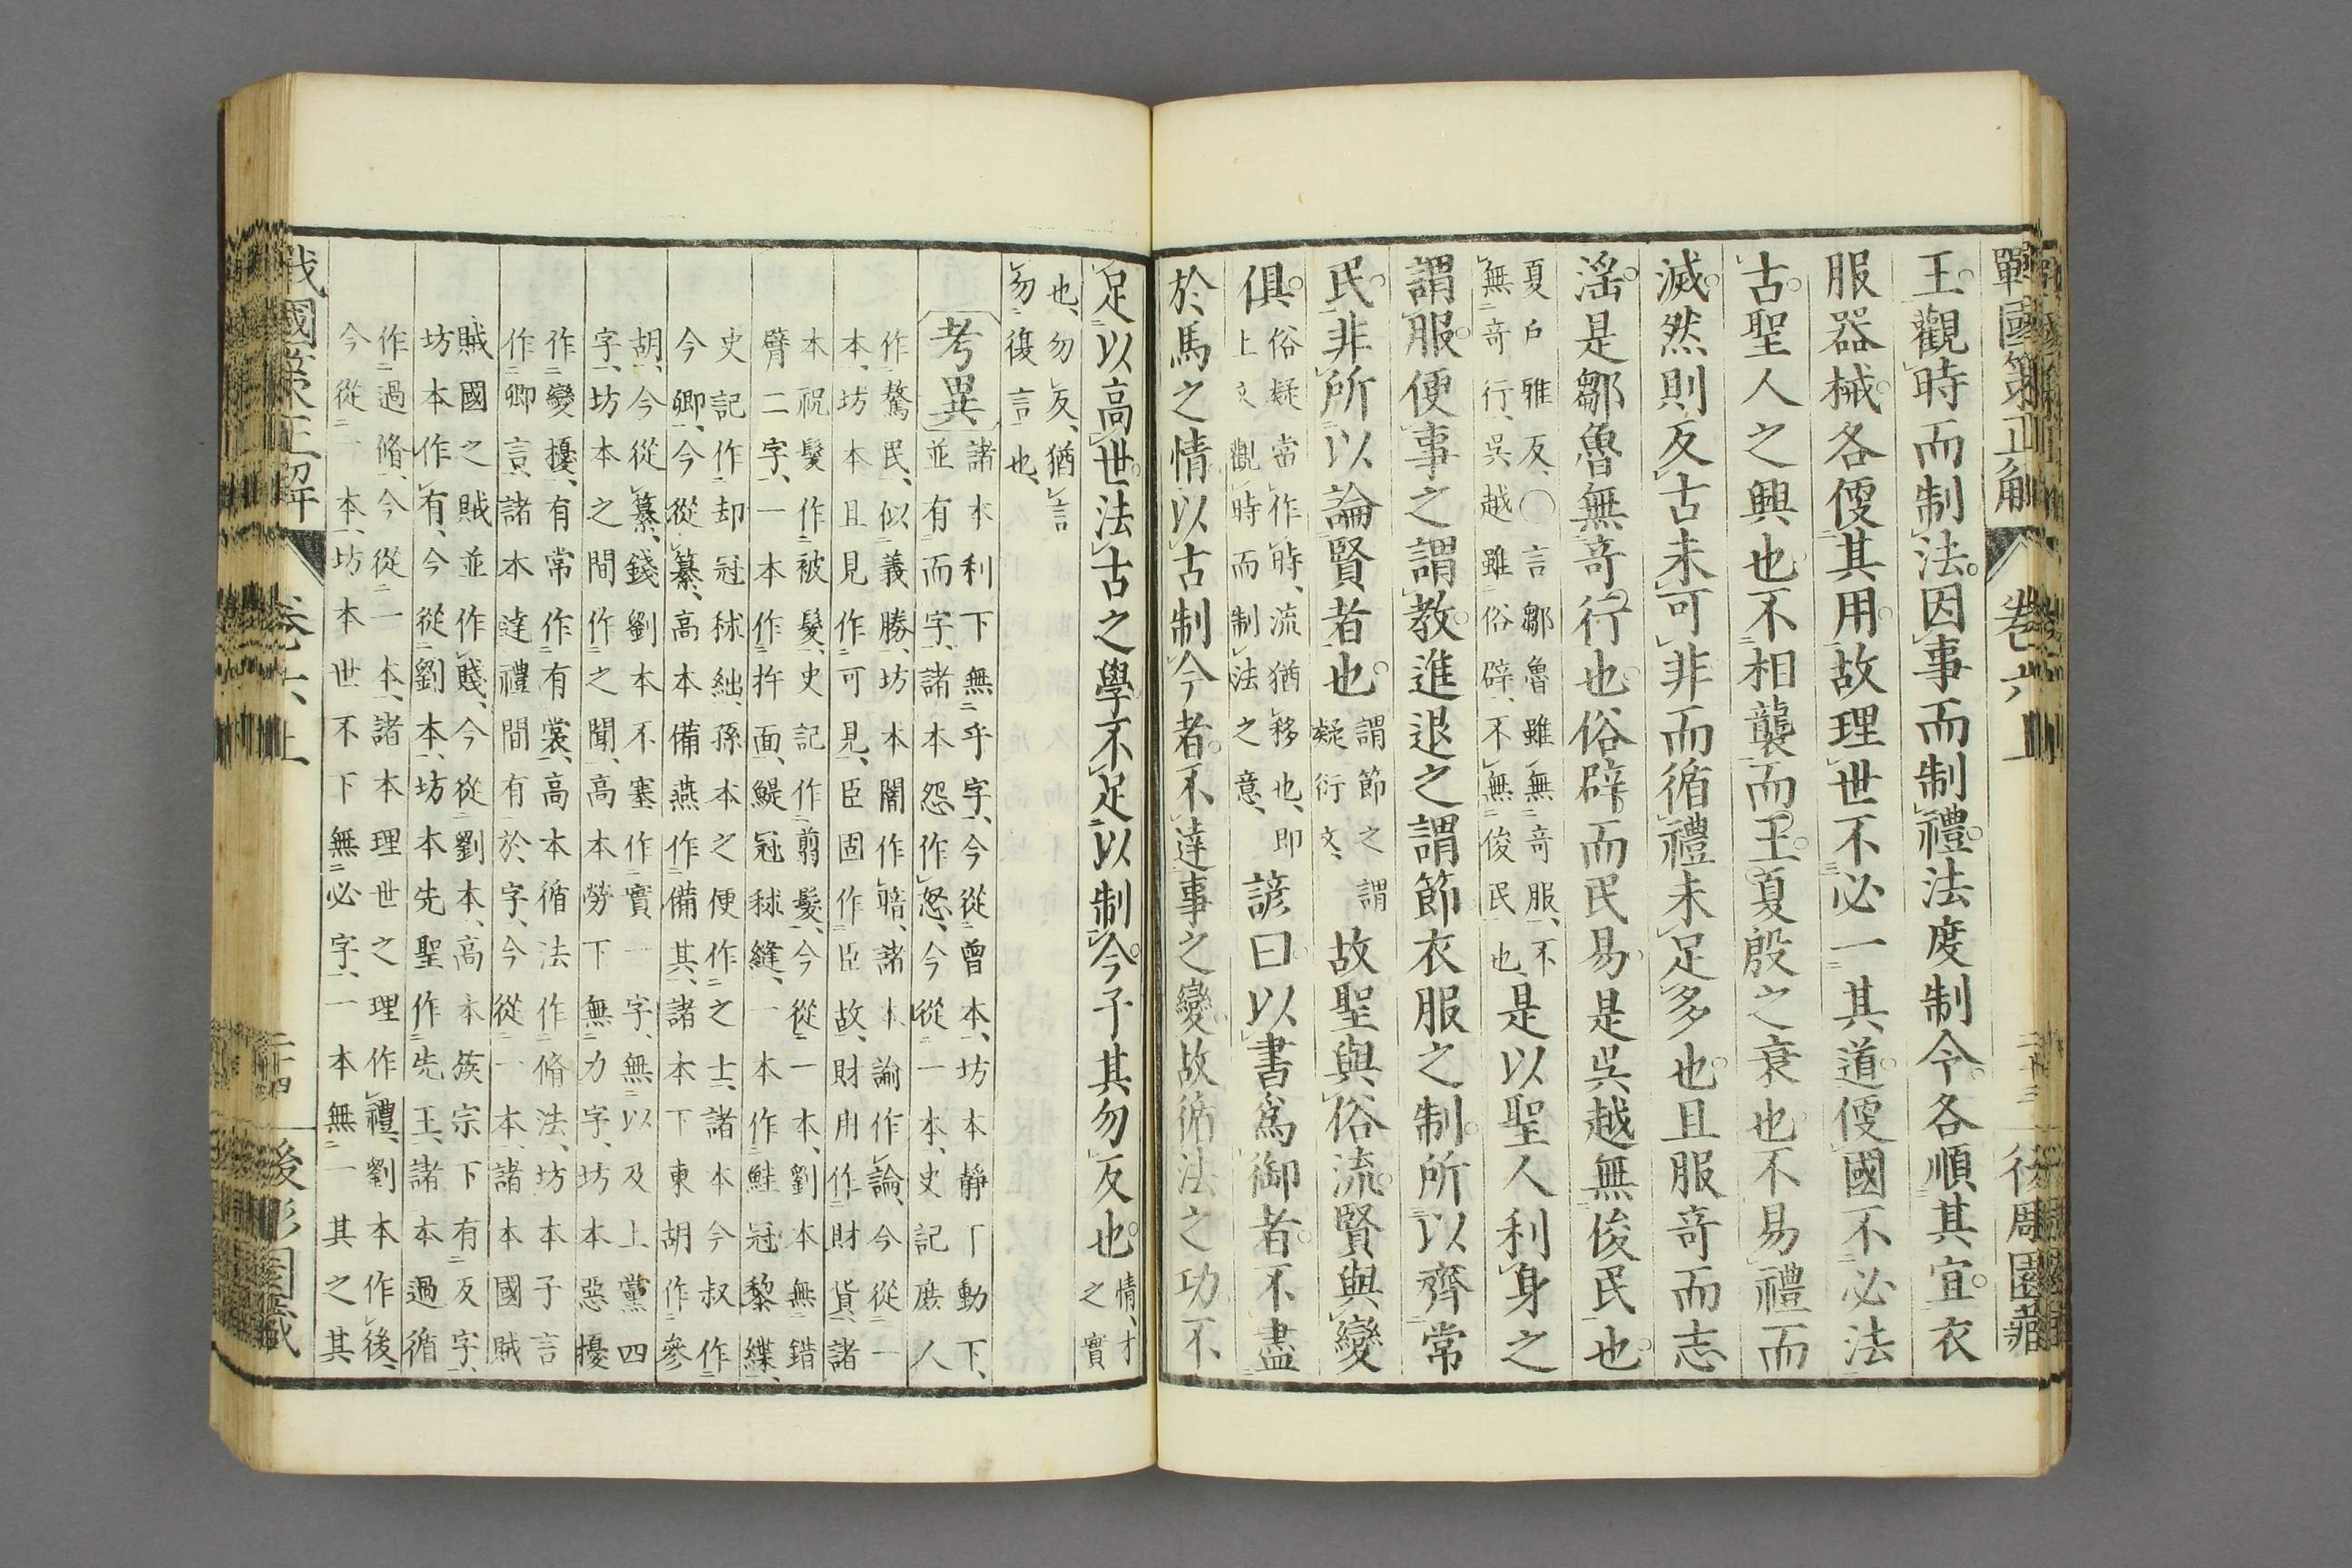 戰國策正解 卷六上 二十三 後凋園藏
王觀時而制法因事而制禮法度制令各順其宜衣
服器械各便其用故理世不必一其道便國不必法
古聖人之興也不相襲而王夏殷之衰也不易禮而
滅然則反古未可非而循禮未足多也且服奇而志
淫是鄒魯無奇行也俗辟而民易是吳越無俊民也
夏戶雅反○言鄒魯雖無奇服不
無奇行吳越雖俗辟不無俊民也
是以聖人利身之
謂服便事之謂教進退之謂節衣服之制所以齊常
民非所以論賢者也
謂節之謂
疑衍文
故聖與俗流賢與變
俱
俗疑當作時流猶移也即
上文觀時而制法之意
諺曰以書爲御者不盡
於馬之情以古制今者不達事之變故循法之功不
足以高世法古之學不足以制今子其勿反也
情才
之實
也勿反猶言
勿復言也
考異
諸本利下無乎字今從曾本坊本靜「動下
並有而字諸本怨作怒今從一本史記庶人
作驁民似義勝坊本闇作暗諸本諭作論今從一
本坊本且見作可見臣固作臣故財用作財貨諸
本祝髮作被髮史記作翦髮今從一本劉本無錯
臂二字一本作抃面鯷冠秫縫一本作鮭冠黎緤
史記作却冠秫絀孫本之便作之士諸本今叔作
今卿今從纂高本備燕作備其諸本下東胡作參
胡今從纂錢劉本不塞作實一字無以及上黨四
字坊本之間作之聞高本勞下無力字坊本惡擾
作變擾有常作有裳高本循法作脩法坊本子言
作卿言諸本達禮間有於字今從一本諸本國賊
賊國之賊並作賤今從劉本高本族宗下有反字
坊本作有今從劉本坊本先聖作先王諸本過循
作過脩今從一本諸本理世之理作禮劉本作後
今從一本坊本世不下無必字一本無一其之其
戰國策正解 卷六上 二十四 後凋園藏